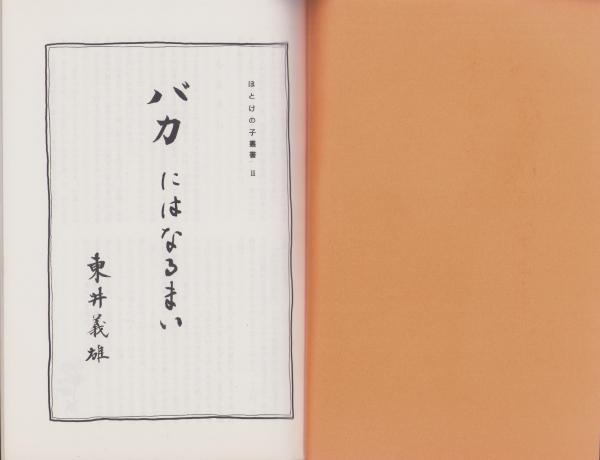 ほとけの子叢書 II
バカにはなるまい
東井義雄